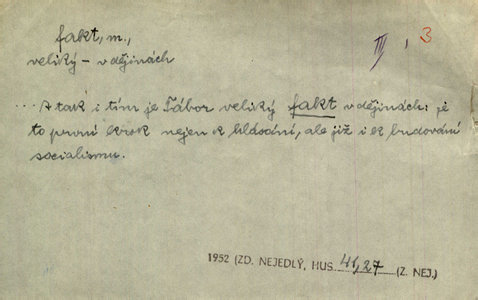 fakt, m.,
III, 3
veliký – v dějinách
... A tak i tím je Tábor veliký fakt v dějinách: je
to první krok nejen k hlásání, ale již i ke budování
socialismu.
1952 (ZD. NEJEDLÝ, HUS. 41,27 (Z. NEJ.)